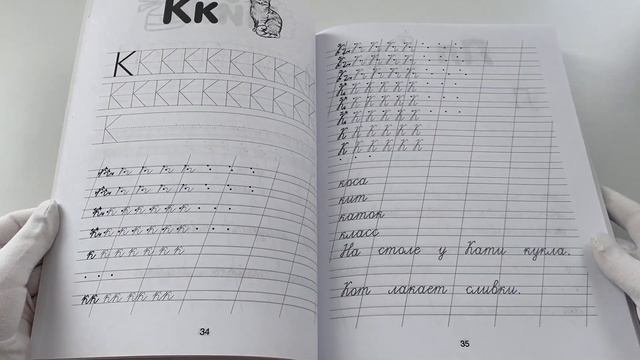 Кк
К К К К К К К К К
К К К К К К К К К К
К
к к к к к к к
кк кк кк кк кк
34
К К К К К К
К К К К К К
К К К К К К
К К К К К К
К К К К К К
коса
кит
каток
класс
На столе у Кати кукла.
Кот лакает сливки.
35